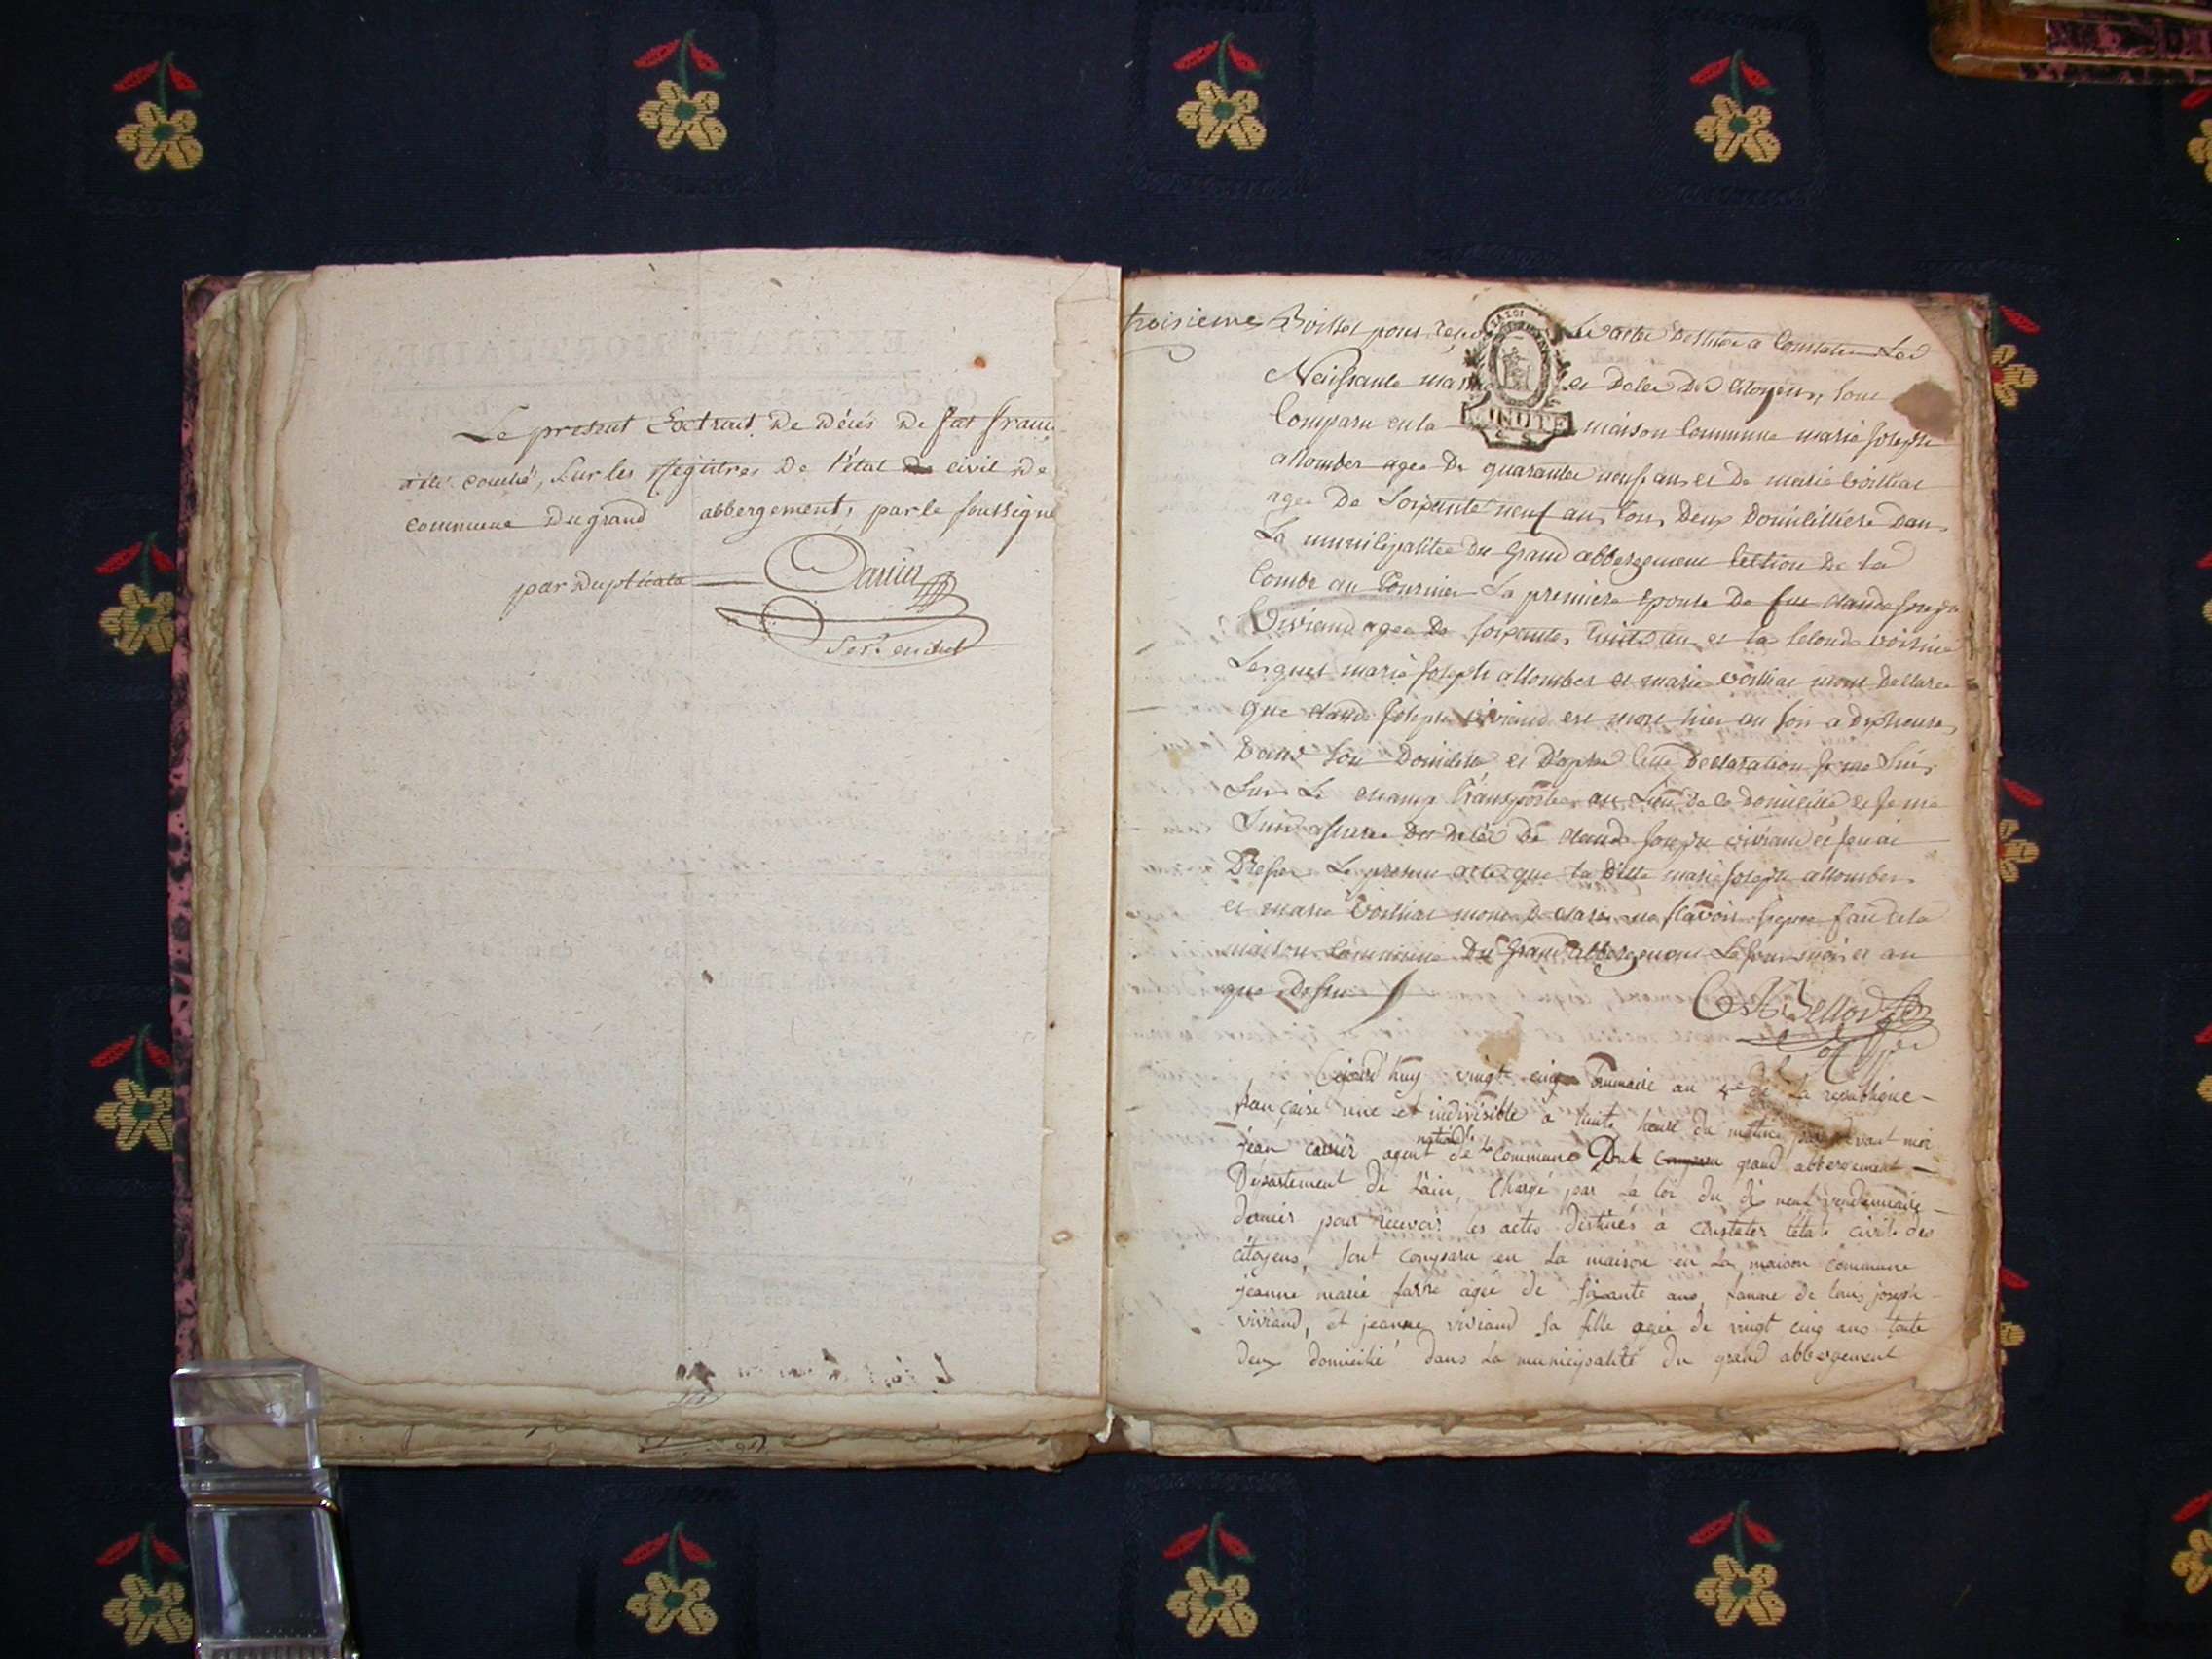 Le present Extrait de décés de fat franc
a été couché, sur les Registres de l'état de civil de
commune du grand abbergement, par le soussigné
par duplicata
Secr. en chef
troisieme pour actes destinée a Constater Les
Naissance et deces des Citoyens, sont
Comparu en la maison Commune marie joseph
allombes agée de quarante neuf ans et de marie
agee de Soixante neuf ans tous deux domicilliere dans
La municipalitee du Grand abbergement section de la
Combe au La premiere epouse de feu claude joseph
viviand agee de soixante huit ans et la seconde voisine
Lesquel marie joseph allombes et marie mont declaree
que claude joseph viviand est mort hier au soir a dix heures
dans son domicille et d'apres cette declaration je me suis
sur Le champ transportee au lieu de ce domicille et je me
suis assuree du deces de claude joseph viviand et jen ai
dresser Le present acte que la dite marie joseph allombes
et marie mont declare ne scavoir signer fait a la
maison commune du grand abbergement Le jour mois et an
que dessus
off per
Cejourd'huy vingt cinq brumaire an 4e de la republique
françaisse une et indivisible a huits heure du matin par devant moi
jean agent national de la commune grand abbergement
Département de Lain, Chargé par La loi du dix neuf vendemiaire
dernier pour recevoir les actes distinés à constater létat civil des
citoyens, sont comparu en La maison en La maison commune
jeanne marie agée de soixante ans famme de joseph
viviand, et jeanne viviand sa fille agée de vingt cinq ans toute
deux domicilié dans La municipalité du grand abbergement
MINUTE